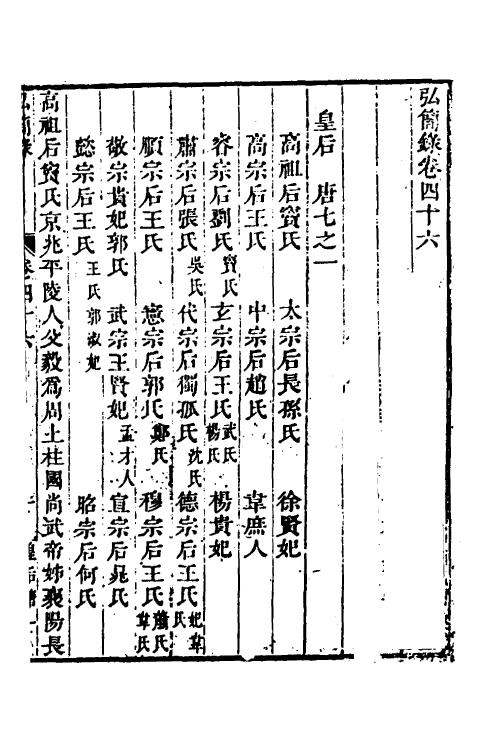 弘簡錄卷四十六
皇后 唐七之一
高祖后竇氏 太宗后長孫氏 徐賢妃
高宗后王氏 中宗后趙氏 韋庶人
睿宗后劉氏 竇氏 玄宗后王氏 武氏 楊氏 楊貴妃
肅宗后張氏 吳氏 代宗后獨孤氏 沈氏 德宗后王氏 妃韋氏
順宗后王氏 憲宗后郭氏 鄭氏 穆宗后王氏 蕭氏 韋氏
敬宗貴妃郭氏 武宗王賢妃 孟才人 宣宗后晁氏
懿宗后王氏 王氏 郭淑妃 昭宗后何氏
高祖后竇氏京兆平陵人父毅爲周上柱國尚武帝姊襄陽長
弘簡錄 卷四十六 皇后唐一